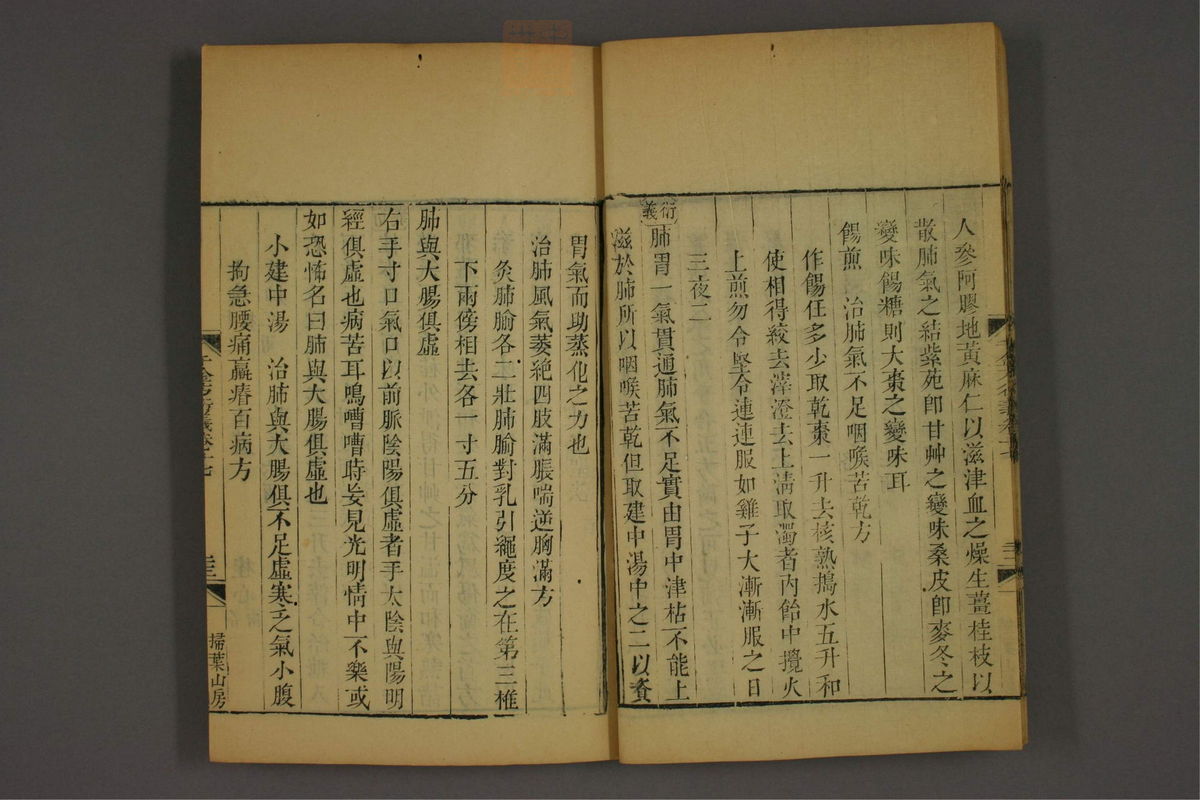 人參阿膠地黃麻仁以滋津血之燥生薑桂枝以
散肺氣之結紫苑卽甘艸之變味桑皮卽麥冬之
變味餳糖則大棗之變味耳
餳煎　治肺氣不足咽喉苦乾方
作餳任多少取乾棗一升去核熟搗水五升和
使相得絞去滓澄去上清取濁者內飴中攪火
上煎勿令堅令連連服如雞子大漸漸服之日
三夜二
衍義 肺胃一氣貫通肺氣不足實由胃中津枯不能上
滋於肺所以咽喉苦乾但取建中湯中之二以資
胃氣而助蒸化之力也
治肺風氣萎絶四肢滿脹喘逆胸滿方
灸肺腧各二壯肺腧對乳引繩度之在第三椎
下兩傍相去各一寸五分
肺與大腸俱虛
右手寸口氣口以前脈陰陽俱虛者手太陰與陽明
經俱虛也病苦耳鳴嘈嘈時妄見光明情中不樂或
如恐怖名曰肺與大腸俱虛也
小建中湯　治肺與大腸俱不足虛寒乏氣小腹
拘急腰痛羸瘠百病方
掃葉山房